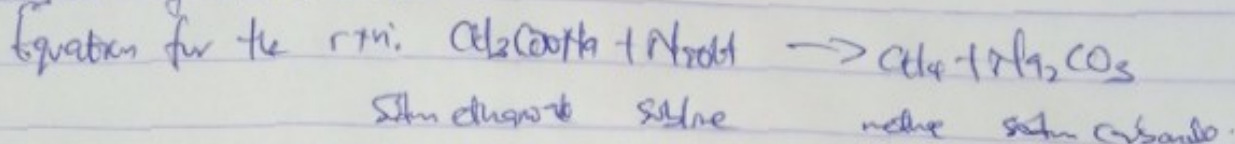 Equation for the rxn. CH3COONa + NaOH -> CH4 + Na2CO3
sodium ethanoate sodalime methane sodium carbonate.